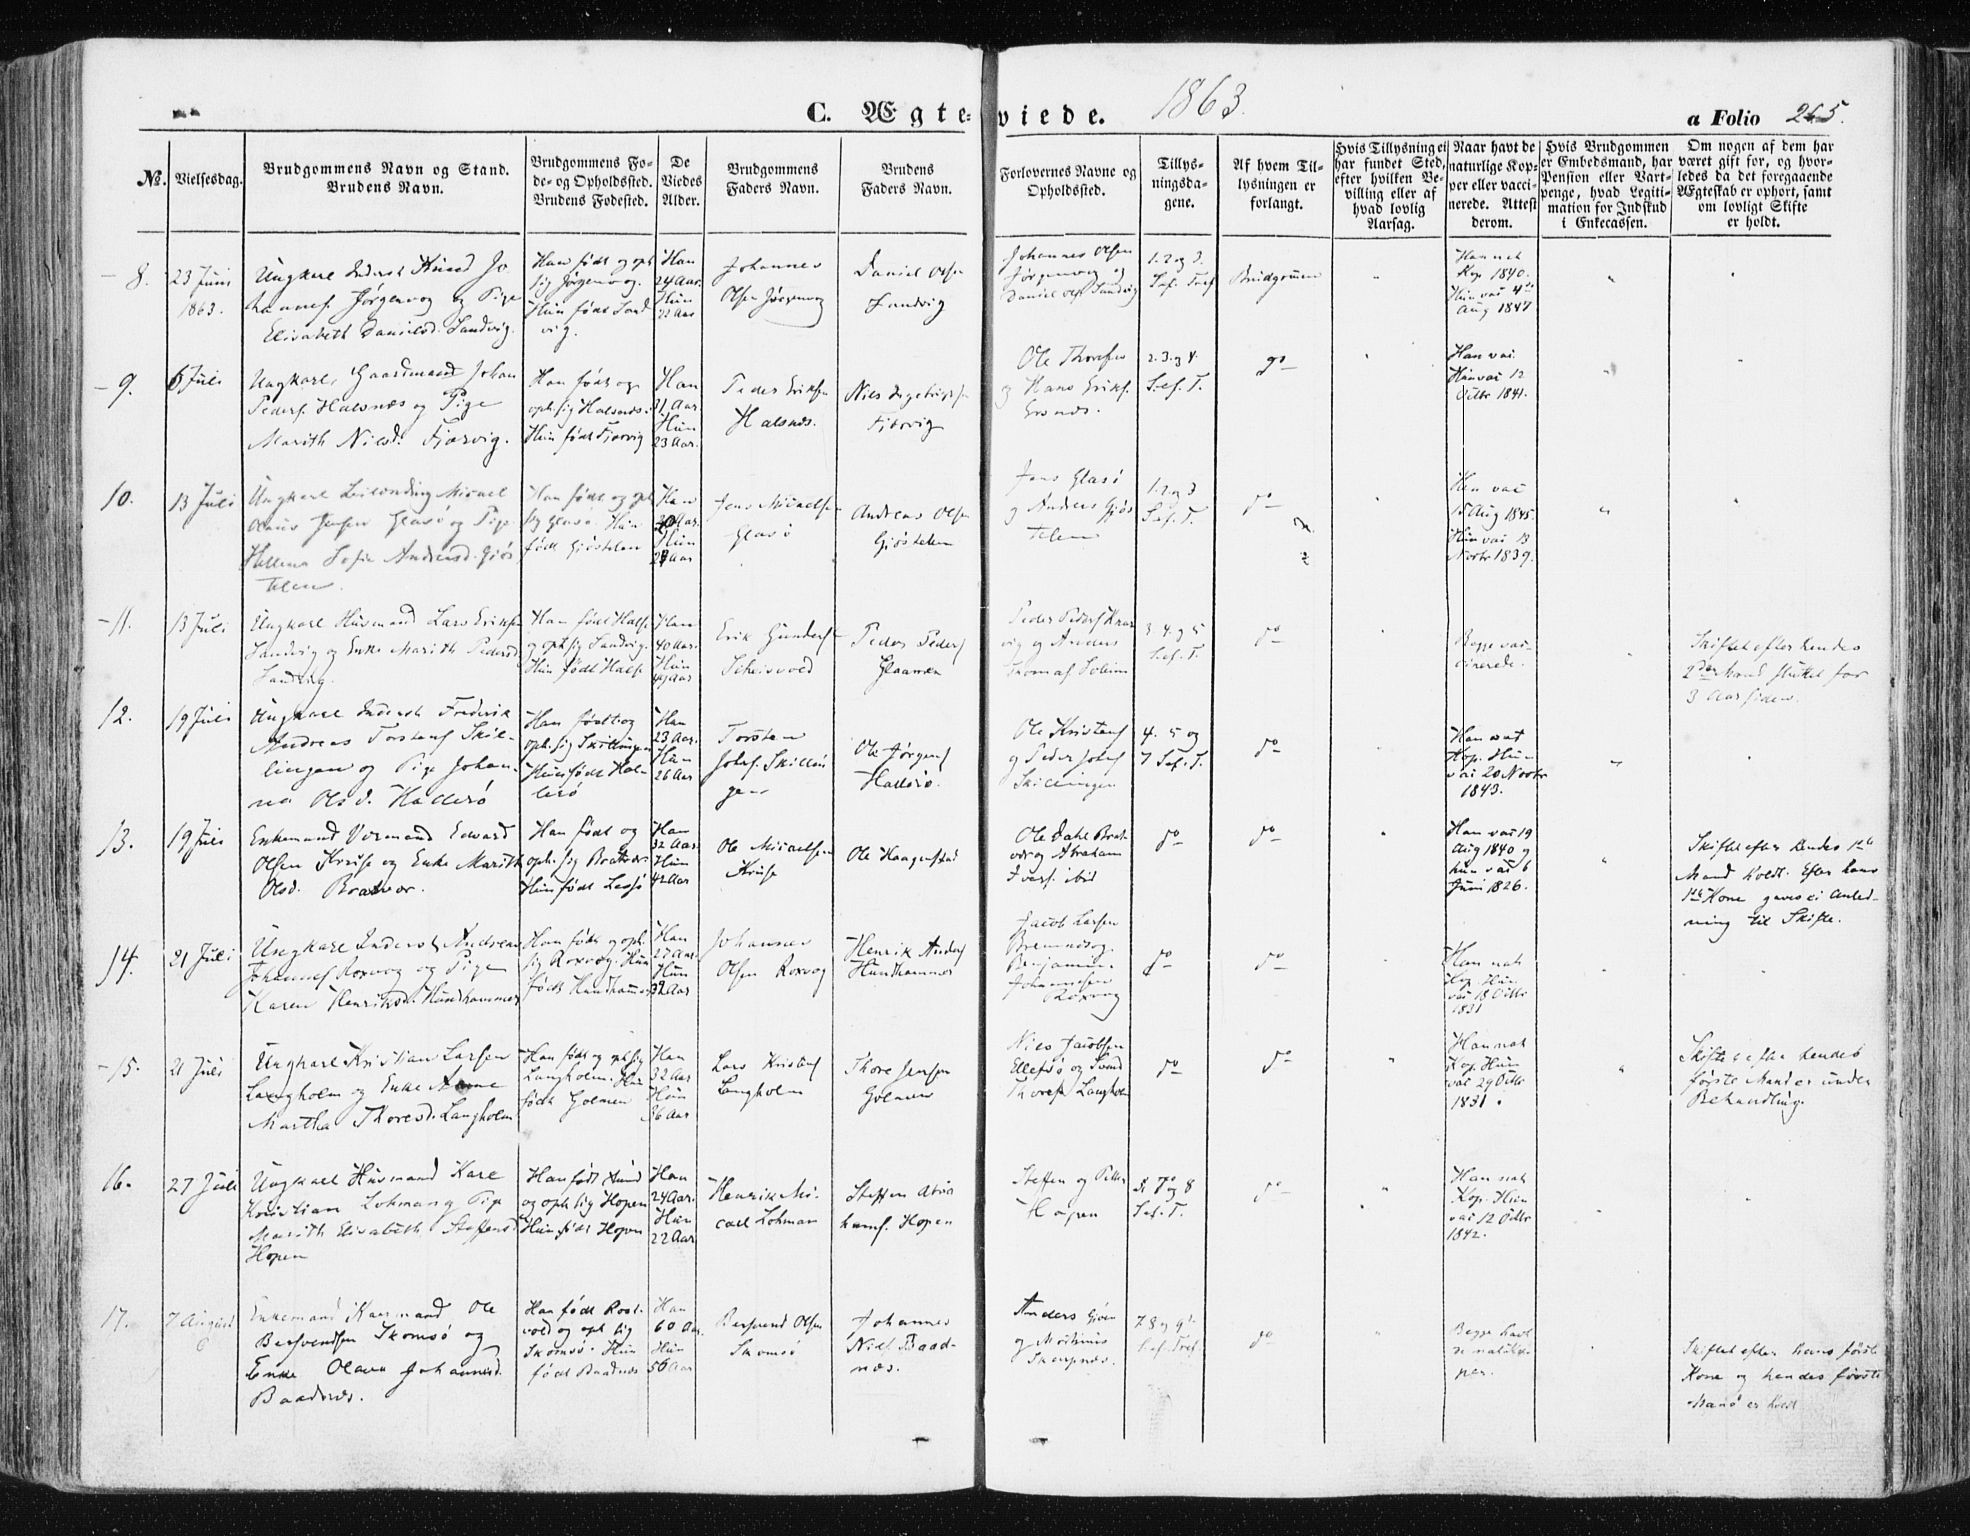 C. Ægte-viede. 1863. a Folio 265.
No.
Vielsesdag.
Brudgommens Navn og Stand.
Brudens Navn.
Brudgommens Fo-
de- og Opholdssted.
Brudens Fødested.
De
Viedes
Alder.
Brudgommens
Faders Navn.
Brudens
Faders Navn.
Forlovernes Navne og
Opholdssted.
Tillys-
ningsda-
gene.
Af hvem Til-
lysningen er
forlangt.
Hvis Tillysning ei
har fundet Sted,
efter hvilken Be-
villing eller af
hvad lovlig
Aarsag.
Naar havt de
naturlige Kop-
per eller vacci-
nerede. Attest
derom.
Hvis Brudgommen
er Embedsmand, har
Pension eller Vart-
penge, hvad Legiti-
mation for Indskud
i Enkecassen.
Om nogen af dem har
været gift før, og hvor-
ledes da det foregaaende
Ægteskab er ophørt, samt
om lovligt Skifte
er holdt.
8.
23 Juni
1863.
Ungkarl Inderst Knud Jo
hannes. Jørgenvog og Pige
Elisabeth Danielsd. Sandvig.
Han født og oph
sig Jørgenvog.
Hun født Sand
vig.
Han
24 Aar.
Hun
22 Aar
Johannes
Olsen Jørgenvog
Daniel Olsen
Sandvig
Johannes Olsen
Jørgenvog og
Daniel Ols. Sandvig
1. 2 og 3.
S. ef. Tref
Brudgommen
Han nat
Kop. 1840.
Hun vac 4de
Aug 1847
9.
6 Juli
Ungkarl, Gaardmand Johan
Peders. Halsnæs og Pige
Marith Nielsd. Fjærvig.
Han født og
oph. sig Halsnæs.
Hun født Fjærvig
Han
31 Aar.
Hun
23 Aar.
Peder Eriksen
Halsnæs.
Niels
Fjærvig
Ole Thoresen
og Hans Eriks.
2. 3. og 4.
S. ef. T.
do
Han vac.
Hun vac 12
Octbr 1841.
10.
13 Juli
Ungkarl Leilending Micael
Olaus Jensen Glasø og Pige
Hellena Sofie Andreasd. Gjøs
telen.
Han født og oph
sig Glasø. Hun
født Gjøstelen
Han
Aar.
Hun
Aar
Jens Micaelsen
Glasø
Andreas Olsen
Gjøstelen
Jens Glasø
og Anders Gjøs
telen
1. 2 og 3
S. ef. T.
do
Han vac
15 Aug 1845.
Hun vac 13
Novbr 1839.
11.
13 Juli
Ungkarl Husmand Lars Eriksen
Sandvig og Enke Marith Pedersd
Sandvig.
Han født Halse
og oph sig Sandvig.
Hun født Halse
Han
40 Aar.
Hun
Aar
Erik Gunders.
Peder Peders
Peder Peders.
vig og Anders
Thomas. Solem
3. 4. og 5
S. ef. T.
do
Begge vac-
cinerede.
Skiftet efter hendes
2den Mand sluttet for
3 Aar siden.
12.
19 Juli
Ungkarl Inderst Frederik
Andreas Torstens. Skil-
lingen og Pige Johan-
na Olsd. Hallesø
Han født og
oph. sig Skillingen
Hun født Hal-
lesø
Han
23 Aar.
Hun
26 Aar
Torsten
Johs. Skillin
gen
Ole Jørgens
Hallesø.
Ole Kristens
og Peder Johs
Skillingen
4. 5 og
7 S. ef. T.
do
Han nat
Kop. Hun
vac 20 Novbr
1843.
13.
19 Juli
Enkemand Vormand Edward
Olsen Kruse og Enke Marith
Olsd. Bratvær.
Han født og
oph. sig Bratvær.
Hun født Lesjø
Han
32 Aar.
Hun
42 Aar
Ole Micaelsen
Kruse
Ole Haagenstad
Ole Dahl Brat
vær og Abraham
Ivers. ibid
do
do
Han vac 19
Aug 1840 og
hun vac 6
Juni 1826.
Skiftet efter hendes 1ste
Mand holdt. Efter hans
1ste Kone gaves ei Anled-
ning til Skifte.
14.
21 Juli
Ungkarl Inderst Andreas
Johannes Roxvog og Pige
Karen Henriksd. Hundhammer
Han født og oph.
sig Roxvog. Hun
født Hundhammer
Han
27 Aar.
Hun
32 Aar
Johannes
Olsen Roxvog
Henrik Anders
Hundhammer
Jacob Larsen
Bremnes og
Benjamin
Johannesen
Roxvog
do
do
Han nat
Kop. Hun
vac 18 Octbr
1831
15.
21 Juli
Ungkarl Kristian Larsen
Langholm og Enke Anne
Martha Thoresd. Langholm
Han født og oph sig
Langholm. Hun
født Golmen
Han
32 Aar
Hun
36 Aar
Lars Kristens
Langholm
Thore Jensen
Golmen
Niels Jacobsen
Ellefsø og Svend
Thores. Langholm
do
do
Han nat
Kop. Hun
vac 29 Octbr
1831.
Skiftet efter hendes
første Mand er under
Behandling.
16.
27 Juli
Ungkarl Husmand Kare
Kristian Lohman og Pige
Marith Elisabeth Steffensd
Hopen
Han født Sund
og oph sig Hopen
Hun født Hopen
Han
24 Aar.
Hun
22 Aar
Henrik Mi-
cael Lohman
Steffen Abra
hams. Hopen
Steffen og Petter
Hopen
7 og 8
S. ef. T.
do
Han nat
Kop. Hun
vac 12 Octbr
1842.
17.
7 August
Enkemand Kaarmand Ole
Bersvendsen Skomsø og
Enke Olava Johannesd.
Baadsnes.
Han født Roal-
vold og oph sig
Skomsø. Hun
født Baadnæs
Han
60 Aar.
Hun
56 Aar
Bersvend Olsen
Skomsø
Johannes
Niels Baad-
næs.
Anders Gjøen
og Mortinus
Skarpnæs.
7. 8 og 9de
S. ef. Tref.
do
Begge havt
de nat. Kop-
per.
Skiftet efter hans første
Kone og hendes første
Mand er holdt